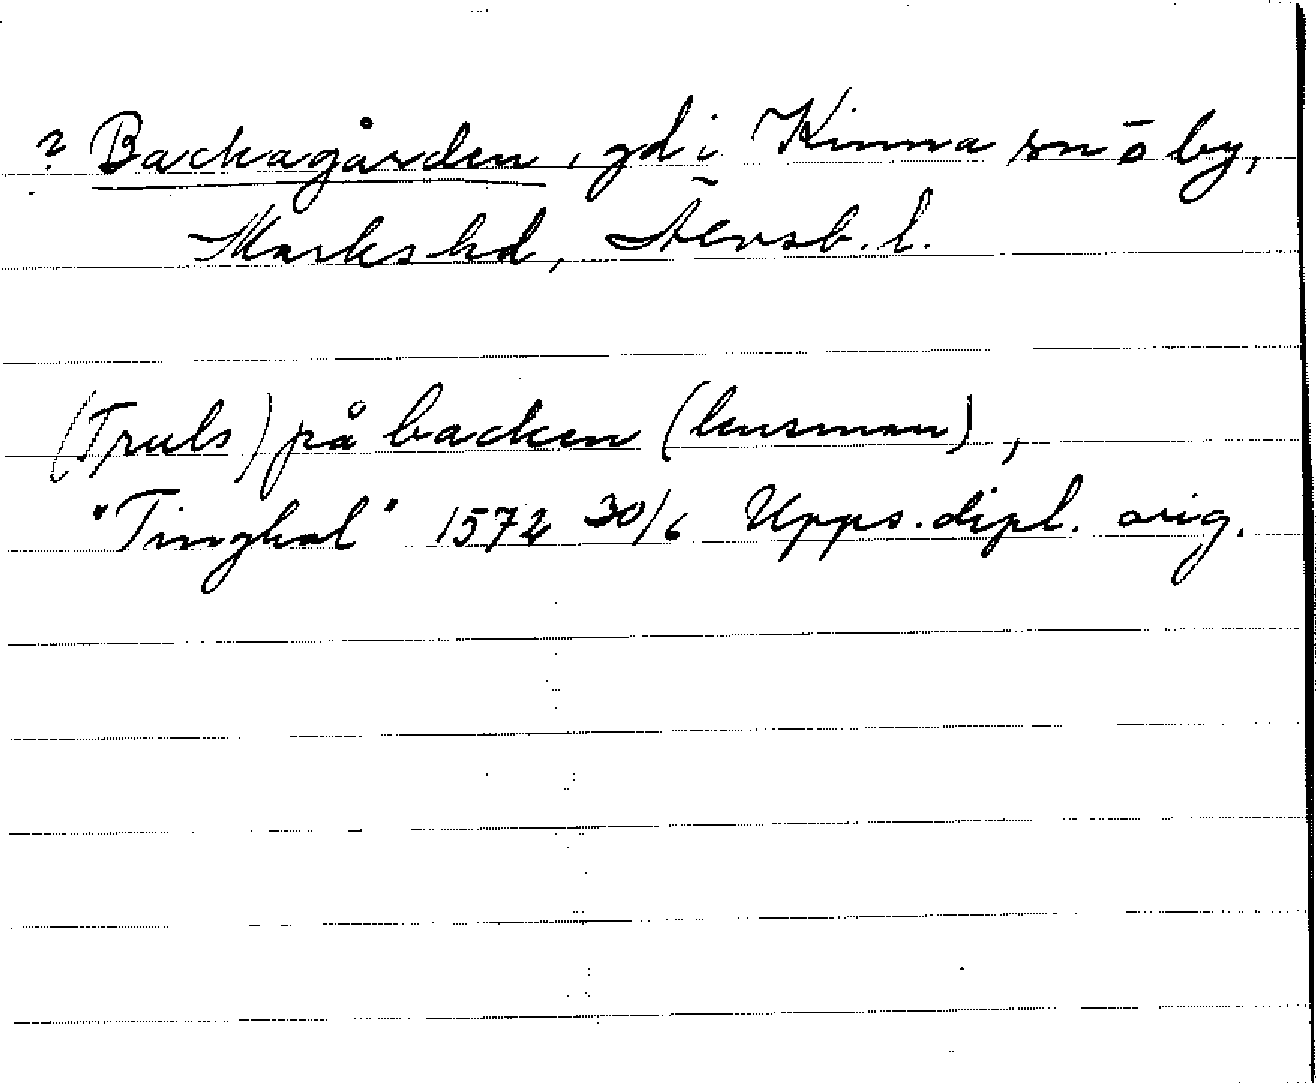 ? Backagården, gd i Kinna sn ō by,
Marks hd, Älvsb. l.
(Truls) på backen (lensman),
"Tinghal" 1572 30/6 Upps. dipl. orig.